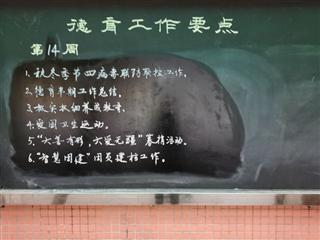 德育工作要点
第14周
1.秋冬季节四病毒联防联控工作。
2.德育半期工作总结。
3.抓实抓细养成教育。
4.爱国卫生运动。
5.“大善有形，大爱无疆”募捐活动。
6.“智慧团建”团员建档工作。